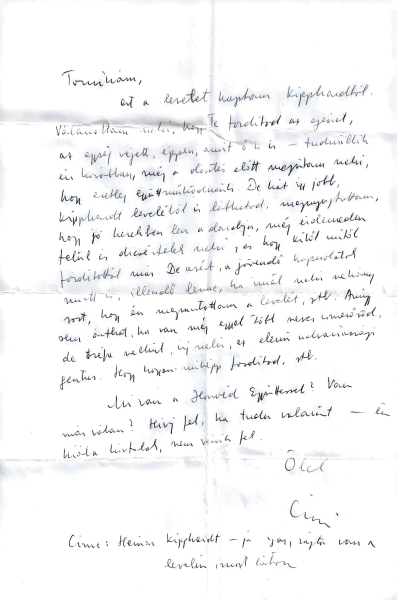 Tomikám,
ezt a levelet kaptam Kipphardtból.
Válaszoltam neki, hogy Te fordítod az egészet,
az egység végett, éppen, amit ő is
én korábban, még a döntés előtt megírtam neki,
hogy esetleg együttműködnénk. De hát így jobb,
Kipphardt leveléből is láthatod. megnyugtattam,
hogy jó kezekben lesz a darabja, még érdemeden
felül is dicsértelek neki, és hogy kitől mitől
fordítottál már. De azért, a jövendő kapcsolatok
miatt is, illendő lenne, ha írnál neki néhány
sort, hogy én megmutattam a levelét, stb. Amúgy
sem árthat, ha van még eggyel több neves ismerősöd,
de tréfa nélkül, írj neki, ez elemi udvariassági
gesztus. Hogy hogyan miképp fordítod, stb.
Mi van a Honvéd Együttessel? Van
már válasz? Hívj fel, ha tudsz valamit — én
hiába hívtalak, nem veszik fel.
Ölel
Cini
Címe: Heinar Kipphardt — ja igaz, rajta van a
levelén, most látom